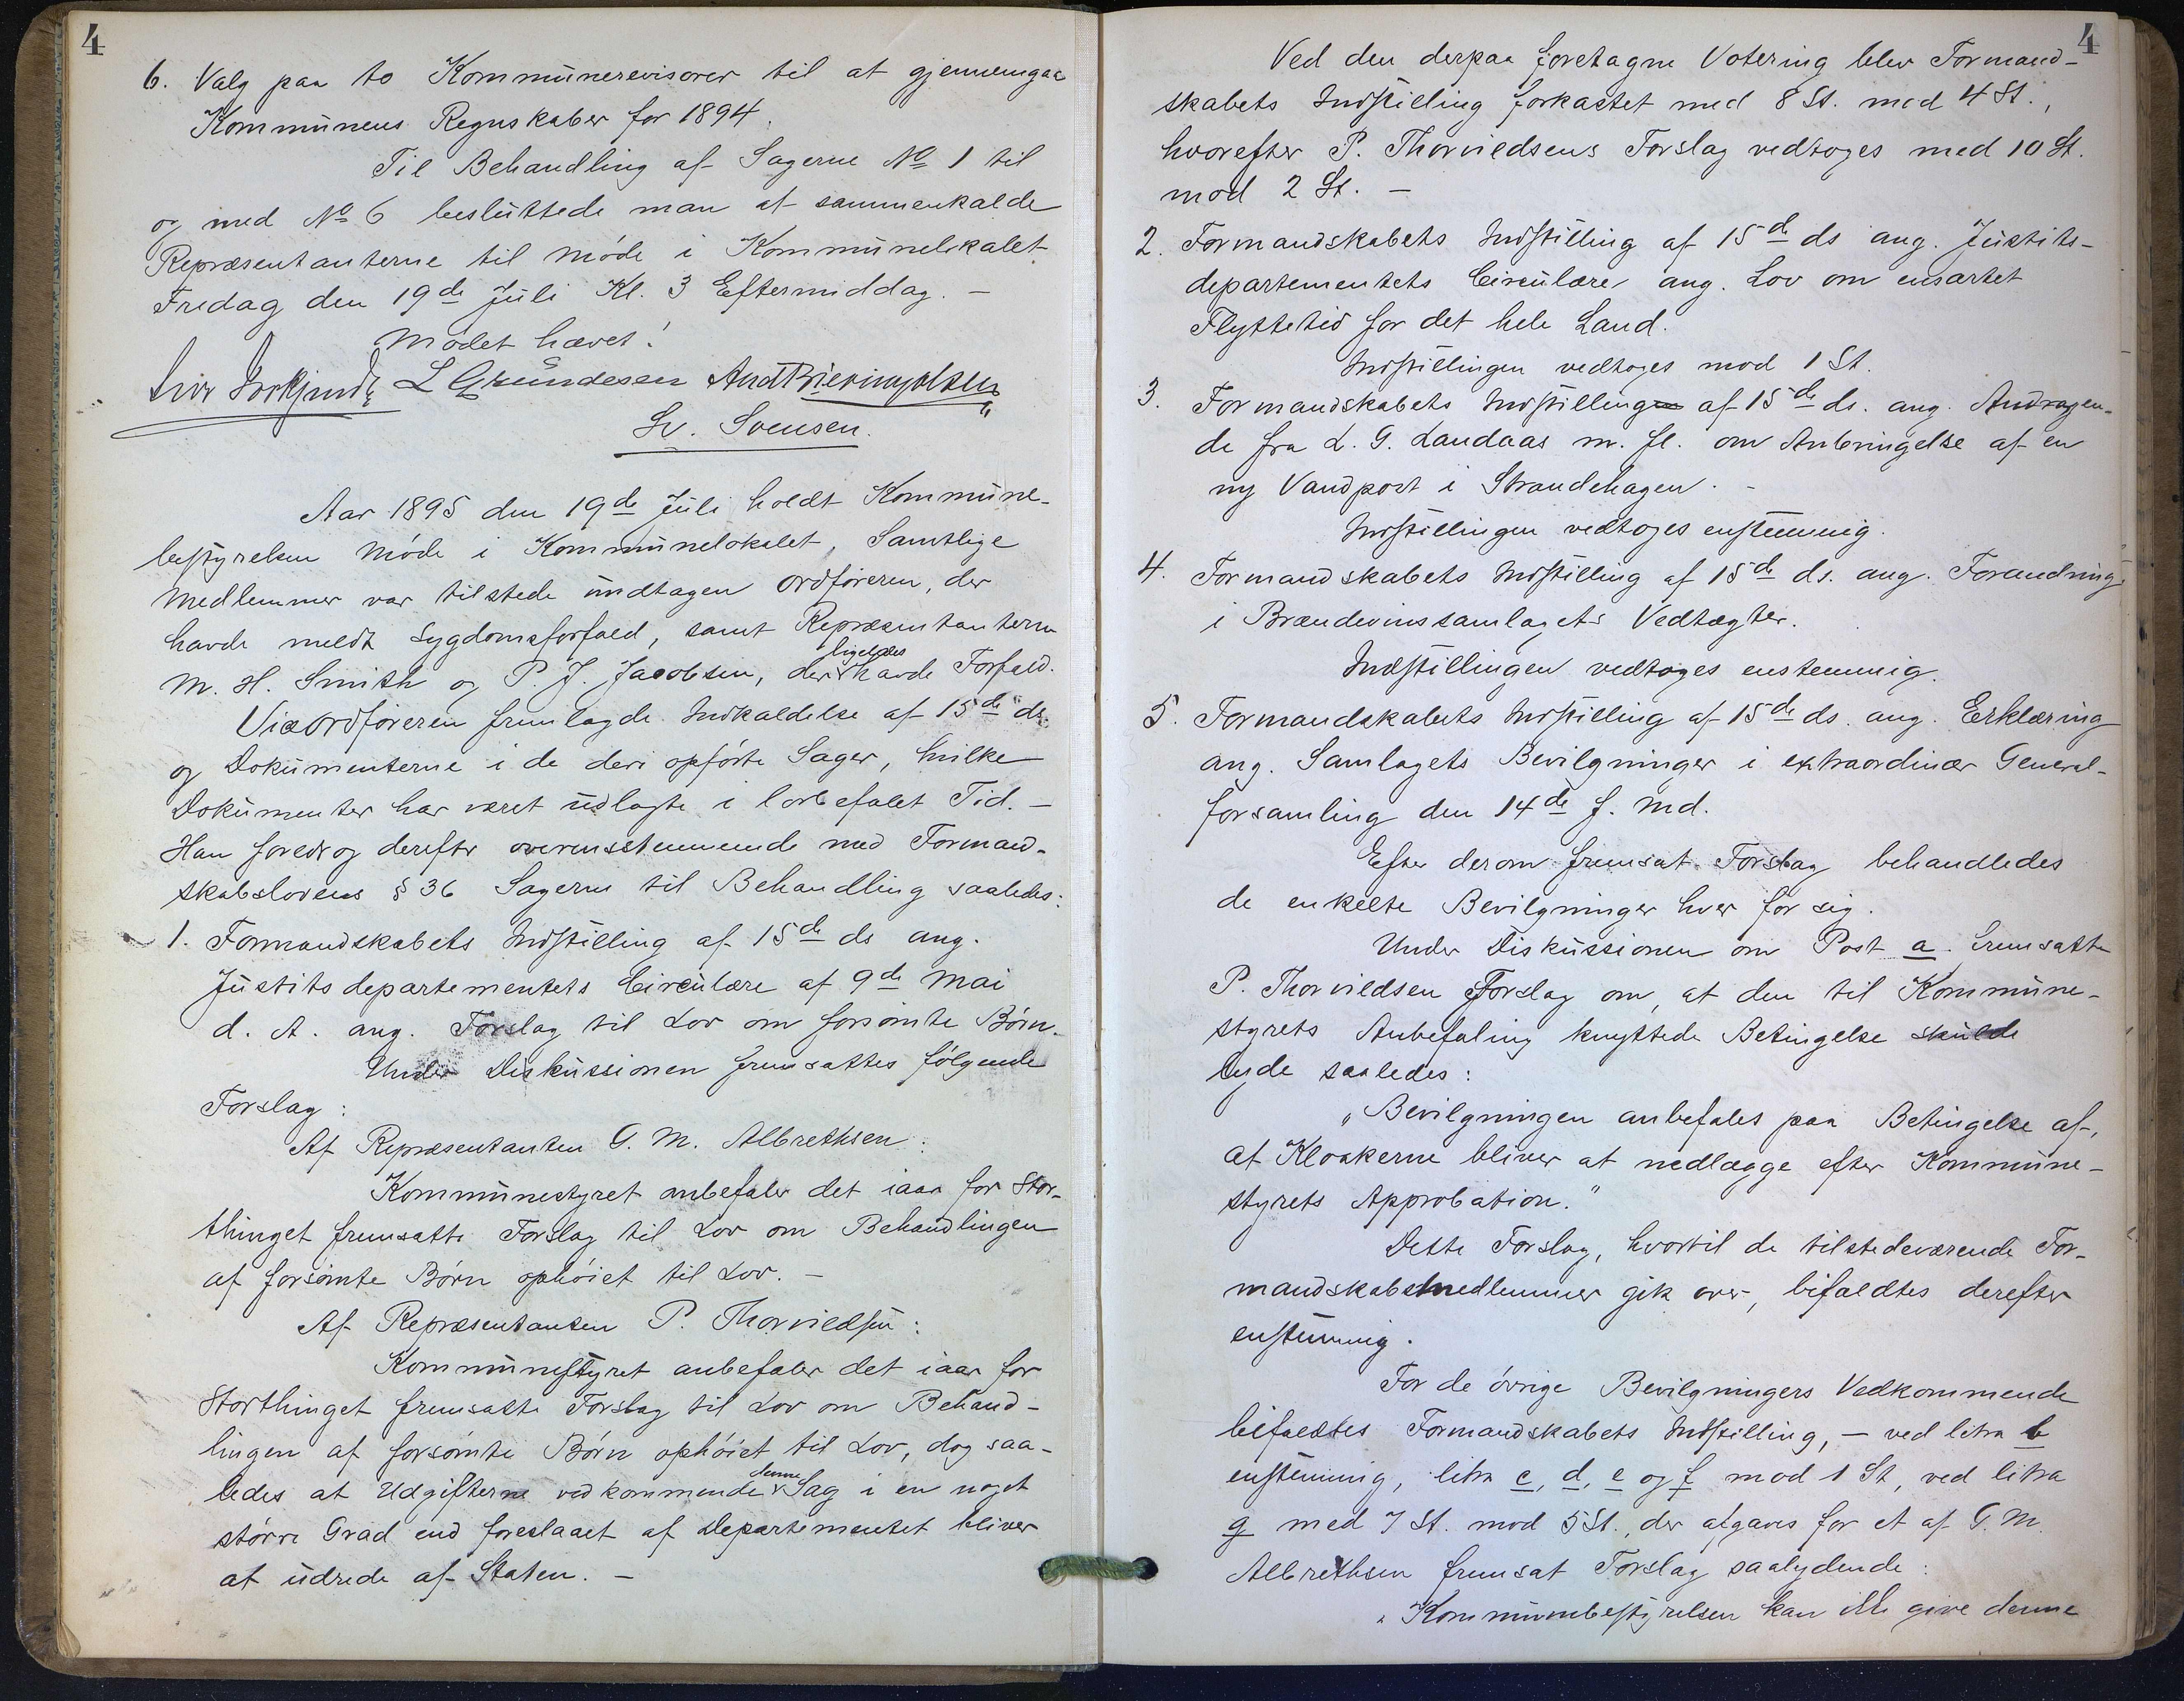 4
6. Valg paa to Kommunerevisorer til at gjennemgaa
Kommunens Regnskaber for 1894.
Til Behandling af Sagerne No 1 til
og med No 6 besluttede man at sammenkalde
Repræsentanterne til Møde i Kommunelokalet
Fredag den 19de Juli Kl. 3 Eftermiddag. —
Mødet hævet!
L Gundesen
Sv. Svensen.
Aar 1895 den 19de Juli holdt Kommune-
bestyrelsen Møde i Kommunelokalet, Samtlige
Medlemmer var tilstede undtagen Ordføreren, der
havde meldt Sygdomsforfald, samt Repræsentanterne
M. H. Smith og P. J. Jacobsen, der ligeledes havde Forfald.
Viceordføreren fremlagde Indkaldelse af 15de ds.
og Dokumenterne i de deri opførte Sager, hvilke
Dokumenter har været udlagte i lovbefalet Tid. —
Han foredrog derefter overensstemmende med Formand-
skabslovens § 36 Sagerne til Behandling saaledes:
1. Formandskabets Indstilling af 15de ds ang.
Justitsdepartementets Circulære af 9de Mai
d. A. ang. Forslag til Lov om forsømte Børn.
Under Diskussionen fremsattes følgende
Forslag:
Af Repræsentanten G. M. Albrethsen:
Kommunestyret anbefaler det iaar for Stor-
thinget fremsatte Forslag til Lov om Behandlingen
af forsømte Børn ophøiet til Lov. —
Af Repræsentanten P. Thorvildsen:
Kommunestyret anbefaler det iaar for
Storthinget fremsatte Forslag til Lov om Behand-
lingen af forsømte Børn ophøiet til Lov, dog saa-
ledes at Udgifterne vedkommende denne Sag i en noget
større Grad end foreslaaet af Departementet bliver
at udrede af Staten. —
4
Ved den derpaa foretagne Votering blev Formand-
skabets Indstilling forkastet med 8 St. mod 4 St.,
hvorefter P. Thorvildsens Forslag vedtoges med 10 St.
mod 2 St. —
2. Formandskabets Indstilling af 15de ds ang. Justits-
departementets Circulære ang. Lov om ensartet
Flyttetid for det hele Land.
Indstillingen vedtoges mod 1 St.
3. Formandskabets Indstilling af 15de ds. ang. Andragen-
de fra L. G. Landaas m. fl. om Anbringelse af en
ny Vandpost i Strandehagen. -
Indstillingen vedtoges enstemmig.
4. Formandskabets Indstilling af 15de ds. ang. Forandring
i Brændevinssamlagets Vedtægter.
Indstillingen vedtoges enstemmig.
5. Formandskabets Indstilling af 15de ds. ang. Erklæring
ang. Samlagets Bevilgninger i extraordinær General-
forsamling den 14de f. Md.
Efter derom fremsat Forslag behandledes
de enkelte Bevilgninger hver for sig.
Under Diskussionen om Post a. fremsatte
P. Thorvildsen Forslag om, at den til Kommune-
styrets Anbefaling knyttede Betingelse skulde
lyde saaledes:
„Bevilgningen anbefales paa Betingelse af,
at Kloakerne bliver at nedlægge efter Kommune-
styrets Approbation."
Dette Forslag, hvortil de tilstedeværende For-
mandskabsmedlemmer gik over, bifaldtes derefter
enstemmig.
For de øvrige Bevilgningers Vedkommende
bifaldtes Formandskabets Indstilling, — ved litra b
enstemmig, litra c, d, e og f mod 1 St, ved litra
g med 7 St. mod 5 St., der afgaves for et af G. M.
Albrethsen fremsat Forslag saalydende:
„Kommunebestyrelsen kan ikke give denne